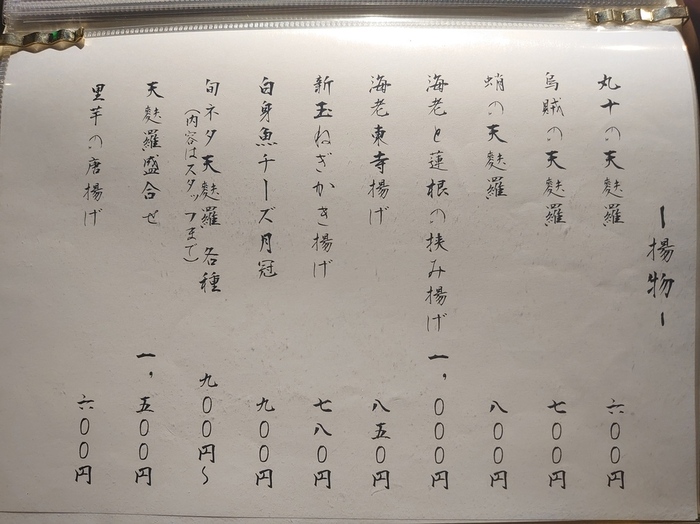 ー揚物ー
丸十の天麩羅 六〇〇円
烏賊の天麩羅 七〇〇円
蛸の天麩羅 八〇〇円
海老と蓮根の挟み揚げ 一,〇〇〇円
海老東寺揚げ 八五〇円
新玉ねぎかき揚げ 七八〇円
白身魚チーズ月冠 九〇〇円
旬ネタ天麩羅 各種 九〇〇円〜
(内容はスタッフまで)
天麩羅盛合せ 一,五〇〇円
里芋の唐揚げ 六〇〇円